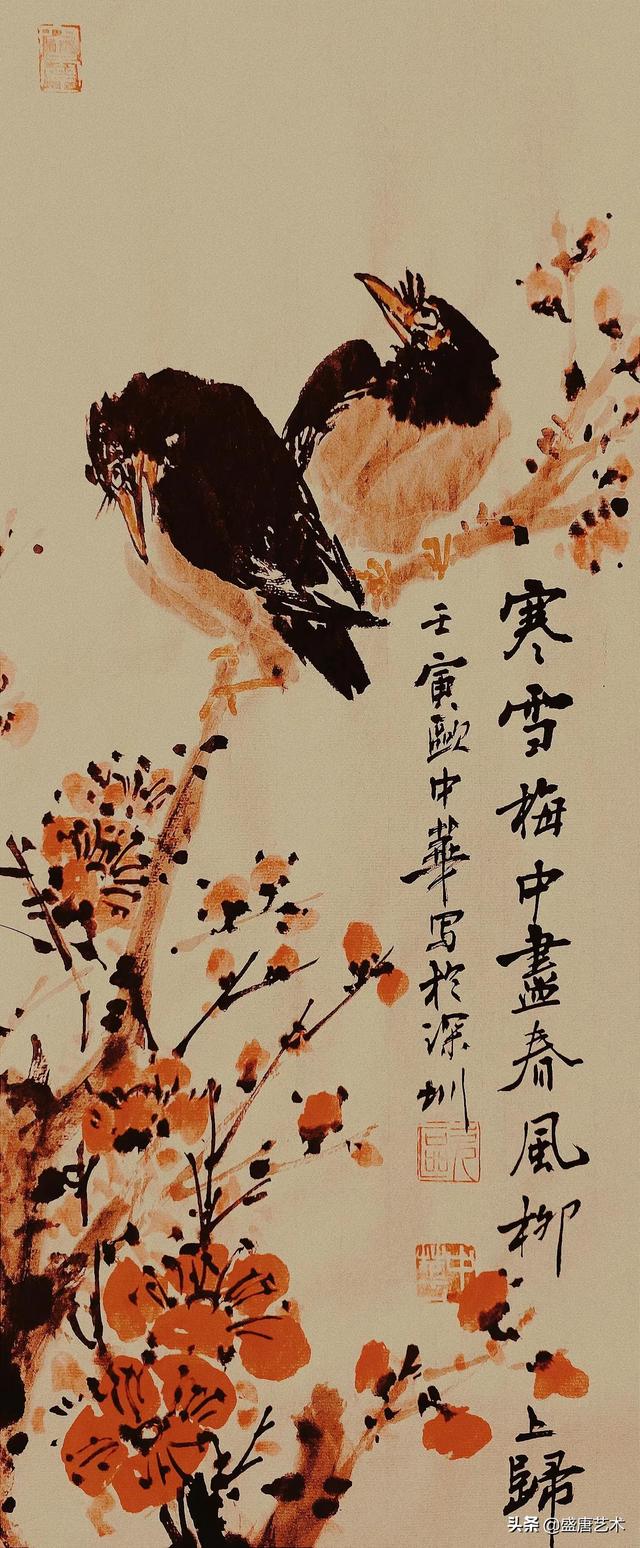 寒雪梅中盡春風柳上歸
壬寅歐中華写於深圳
头条 @盛唐艺术